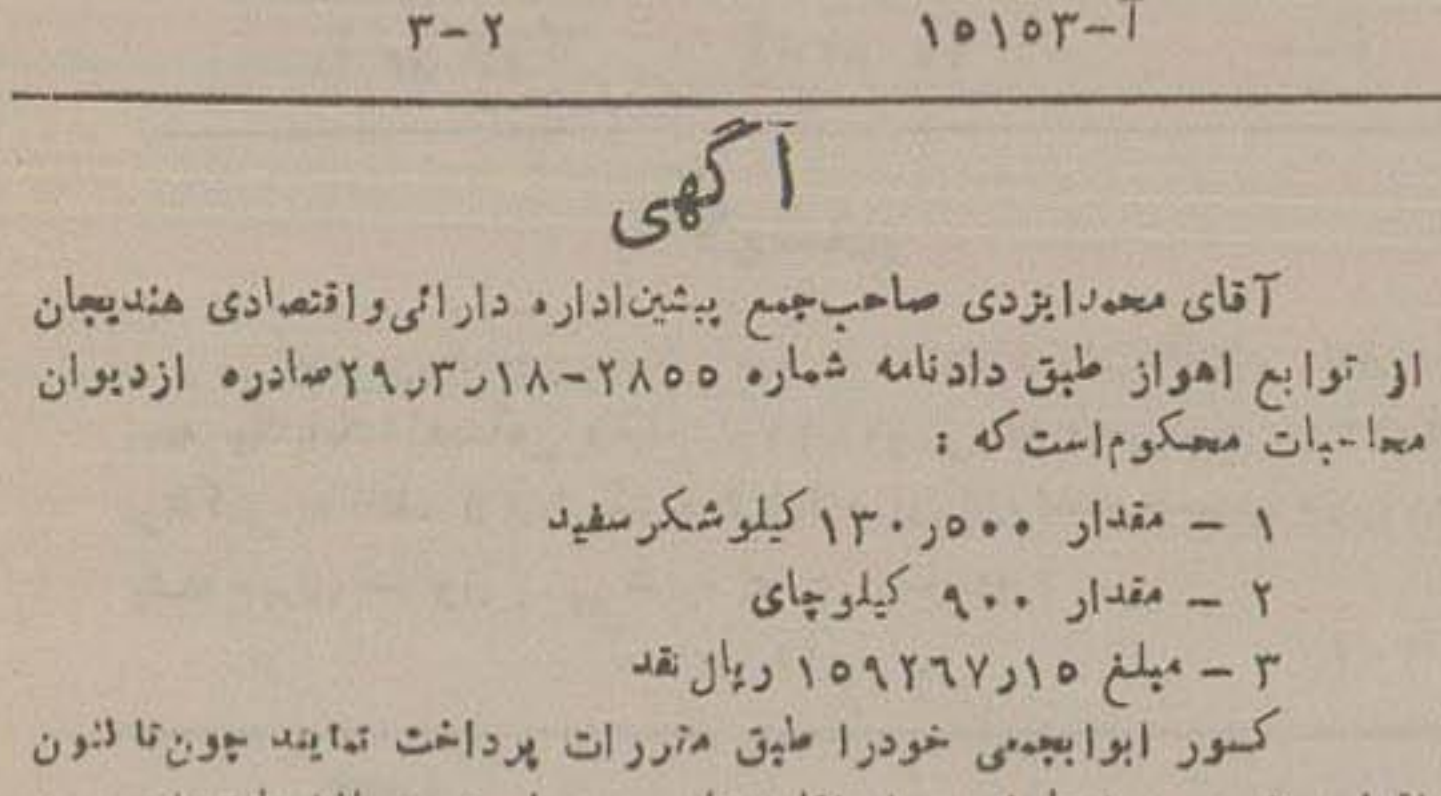 آ-۱۵۱۵۳ ۲-۳
آگهی
آقای محمد ایزدی صاحب‌جمع پیشین اداره دارائی و اقتصادی هندیجان
از توابع اهواز طبق دادنامه شماره ۲۸۵۵-۱۸ر۳ر۲۹ صادره از دیوان
محاسبات محکوم است که :
۱ - مقدار ۵۰۰ر۱۳۰ کیلو شکر سفید
۲ - مقدار ۹۰۰ کیلو چای
۳ - مبلغ ۱۵ر۱۵۹۲۶۷ ریال نقد
کسور ابوابجمعی خود را طبق مقررات پرداخت نمایند چون تا کنون